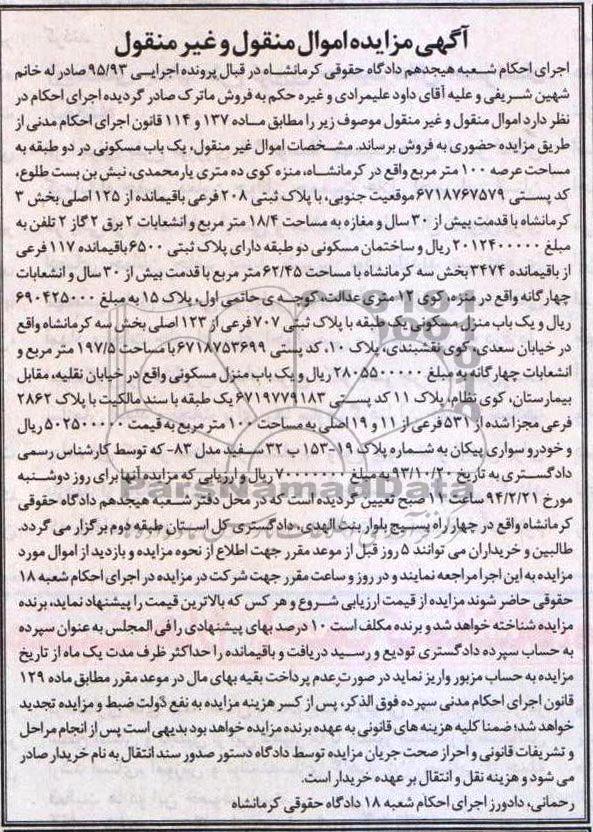 آگهی مزایده اموال منقول و غیر منقول
اجرای احکام شعبه هیجدهم دادگاه حقوقی کرمانشاه در قبال پرونده اجرایی ۹۵/۹۳ صادر له خانم
شهین شریفی و علیه آقای داود علیمرادی و غیره حکم به فروش ماترک صادر گردیده اجرای احکام در
نظر دارد اموال منقول و غیر منقول موصوف زیر را مطابق ماده ۱۳۷ و ۱۱۴ قانون اجرای احکام مدنی از
طریق مزایده حضوری به فروش برساند. مشخصات اموال غیر منقول، یک باب مسکونی در دو طبقه به
مساحت عرصه ۱۰۰ متر مربع واقع در کرمانشاه، منزه کوی ده متری یارمحمدی، نبش بن بست طلوع،
کد پستی ۶۷۱۸۷۶۷۵۷۹موقعیت جنوبی، با پلاک ثبتی ۲۰۸ فرعی باقیمانده از ۱۲۵ اصلی بخش ۳
کرمانشاه با قدمت بیش از ۳۰ سال و مغازه به مساحت ۱۸/۴ متر مربع و انشعابات ۲ برق ۲ گاز ۲ تلفن به
مبلغ ۲۰۱۲۴۰۰۰۰۰ ریال و ساختمان مسکونی دو طبقه دارای پلاک ثبتی ۶۵۰۰باقیمانده ۱۱۷ فرعی
از باقیمانده ۳۴۷۴ بخش سه کرمانشاه با مساحت ۶۲/۴۵ متر مربع با قدمت بیش از ۳۰ سال و انشعابات
چهارگانه واقع در منزه، کوی ۱۲ متری عدالت، کوچه ی حاتمی اول، پلاک ۱۵ به مبلغ ۶۹۰۴۲۵۰۰۰
ریال و یک باب منزل مسکونی یک طبقه با پلاک ثبتی ۷۰۷ فرعی از ۱۲۳ اصلی بخش سه کرمانشاه واقع
در خیابان سعدی، کوی نقشبندی، پلاک ۱۰، کد پستی ۶۷۱۸۷۵۳۶۹۹با مساحت ۱۹۷/۵ متر مربع و
انشعابات چهارگانه به مبلغ ۲۸۰۵۵۰۰۰۰۰ ریال و یک باب منزل مسکونی واقع در خیابان نقلیه، مقابل
بیمارستان، کوی نظام، پلاک ۱۱ کد پستی ۶۷۱۹۷۷۹۱۸۳ یک طبقه با سند مالکیت با پلاک ۲۸۶۲
فرعی مجزا شده از ۵۳۱ فرعی از ۱۱ و ۱۹ اصلی به مساحت ۱۰۰ متر مربع به قیمت ۵۰۲۵۰۰۰۰۰ ریال
و خودرو سواری پیکان به شماره پلاک ۱۹-۱۵۳ ب ۳۲ سفید مدل ۸۳- که توسط کارشناس رسمی
دادگستری به تاریخ ۹۳/۱۰/۲۰ به مبلغ ۷۰۰۰۰۰۰۰ ریال و ارزیابی که مزایده آنها برای روز دوشنبه
مورخ ۹۴/۲/۲۱ ساعت ۱۱ صبح تعیین گردیده است که در محل دفتر شعبه هیجدهم دادگاه حقوقی
کرمانشاه واقع در چهار راه بسیج بلوار بنت الهدی، دادگستری کل استان طبقه دوم برگزار می گردد.
طالبین و خریداران می توانند ۵ روز قبل از موعد مقرر جهت اطلاع از نحوه مزایده و بازدید از اموال مورد
مزایده به این اجرا مراجعه نمایند و در روز و ساعت مقرر جهت شرکت در مزایده در اجرای احکام شعبه ۱۸
حقوقی حاضر شوند مزایده از قیمت ارزیابی شروع و هر کس که بالاترین قیمت را پیشنهاد نماید، برنده
مزایده شناخته خواهد شد و برنده مکلف است ۱۰ درصد بهای پیشنهادی را فی المجلس به عنوان سپرده
به حساب سپرده دادگستری تودیع و رسید دریافت و باقیمانده را حداکثر ظرف مدت یک ماه از تاریخ
مزایده به حساب مزبور واریز نماید در صورت عدم پرداخت بقیه بهای مال در موعد مقرر مطابق ماده ۱۲۹
قانون اجرای احکام مدنی سپرده فوق الذکر، پس از کسر هزینه مزایده به نفع دولت ضبط و مزایده تجدید
خواهد شد؛ ضمنا کلیه هزینه های قانونی به عهده برنده مزایده خواهد بود بدیهی است پس از انجام مراحل
و تشریفات قانونی و احراز صحت جریان مزایده توسط دادگاه دستور صدور سند انتقال به نام خریدار صادر
می شود و هزینه نقل و انتقال بر عهده خریدار است.
رحمانی، دادورز اجرای احکام شعبه ۱۸ دادگاه حقوقی کرمانشاه
ParsNamadData